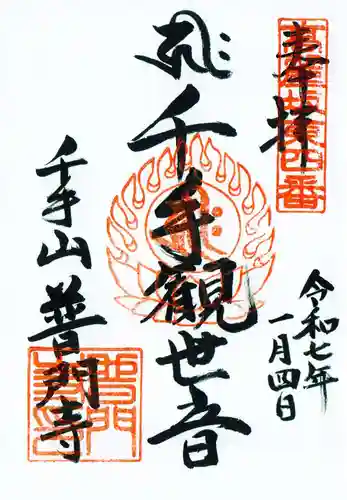 奉拝
千手観世音
千手山普門寺
令和七年
一月四日
普門